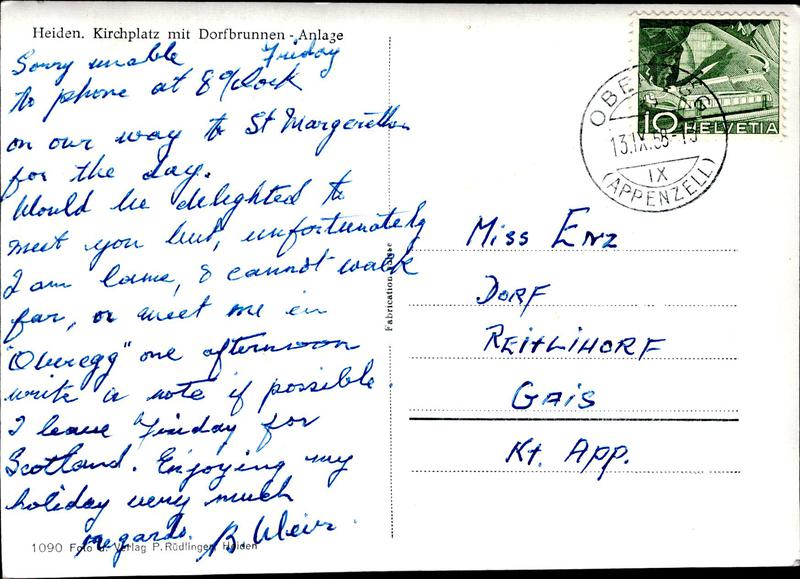 Heiden. Kirchplatz mit Dorfbrunnen - Anlage
Sorry unable Friday
to phone at 8 O'clock
on our way to St Margarethen
for the day.
Would be delighted to
meet you but, unfortunately
I am lame, & cannot walk
far, or meet me in
"Oberegg" one afternoon
write a note if possible.
I leave Friday for
Scotland. Enjoying my
holiday very much
regards. B Weir.
1090 Foto u. Verlag P. Rüdlinger, Heiden
Fabrication Suisse
OBEREGG
13.IX.58-15
IX
(APPENZELL)
10 HELVETIA
Miss Enz
DORF
REITLIHORF
GAIS
Kt. App.